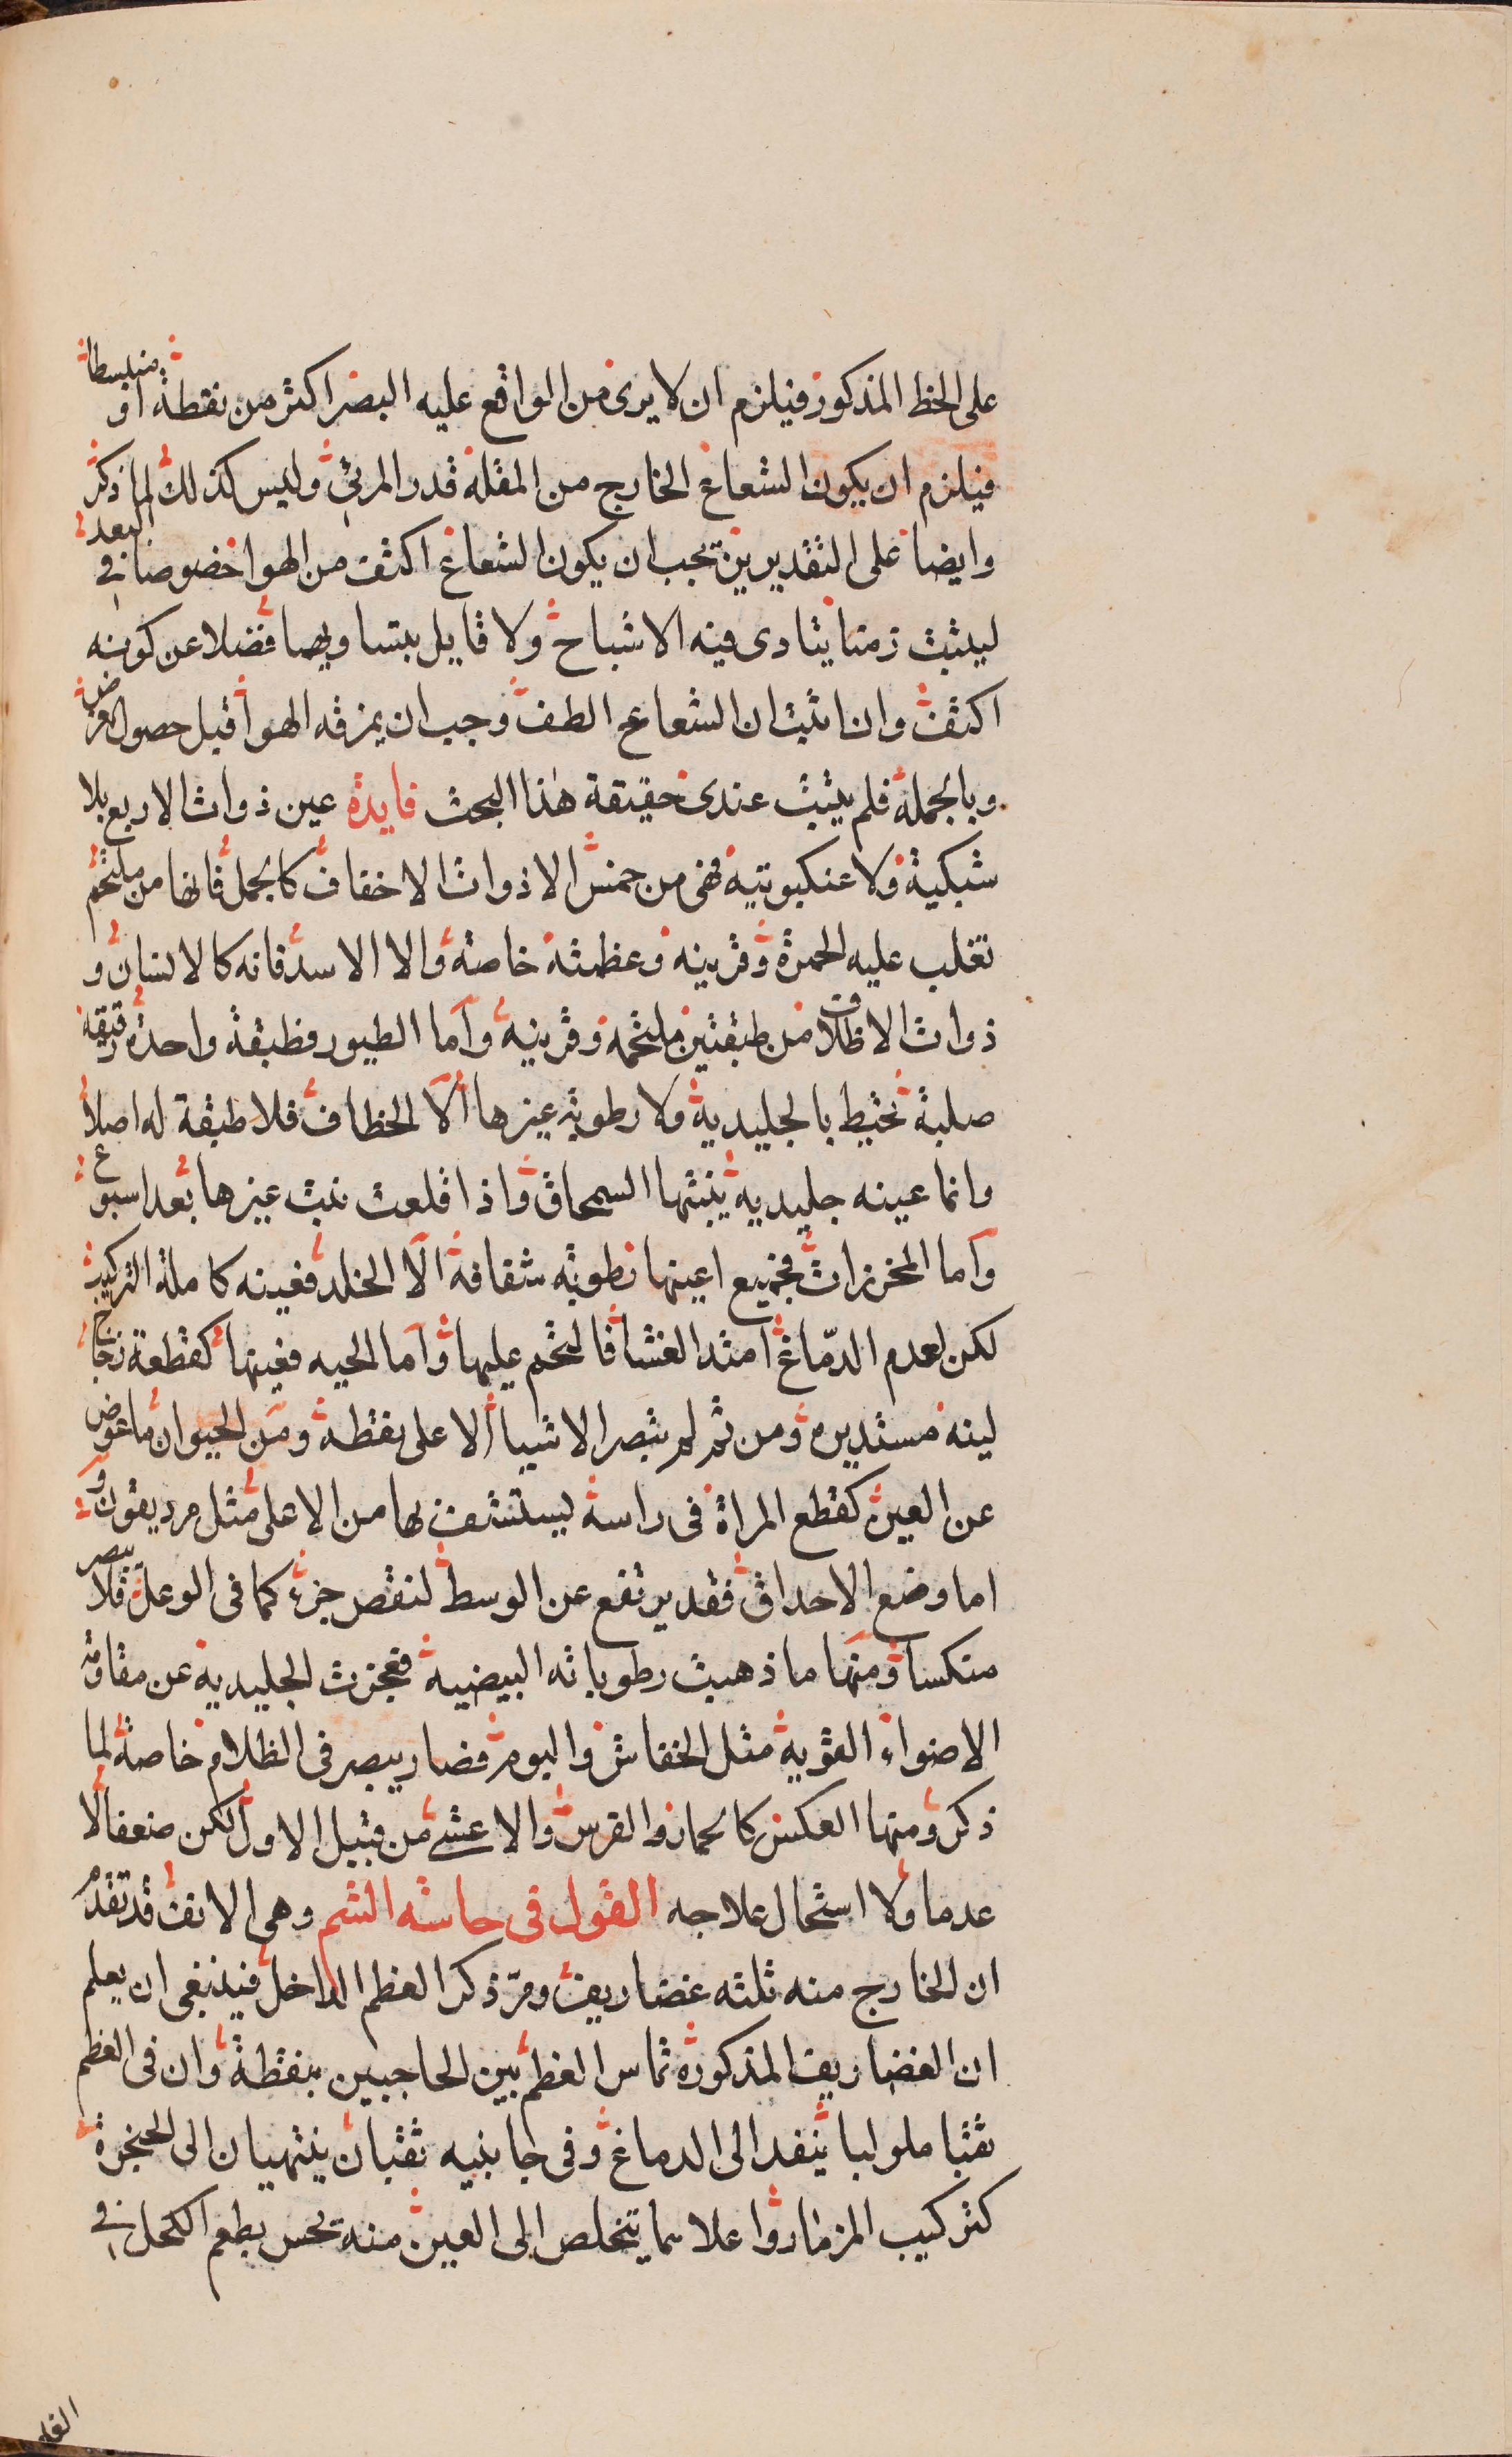 على الخط المذكور فيلزم ان لا يرى من الواقع عليه البصر اكثر من نقطة او منبسطا
فيلزم ان يكون الشعاع الخارج من المقلة قدر المرئي وليس كذلك لما ذكر
وايضا على التقديرين تجب ان يكون الشعاع اكثف من الهوا خصوصا في البعد
ليثبت زمنا يتادى فيه الاشباح ولا قايل بتساويهما فضلا عن كونه
اكثف وان اثبت ان الشعاع الطف وجب ان يمزقه الهوا قبل حصول الغرض
وبالجملة فلم يثبت عندى حقيقة هذا البحث فايدة عين ذوات الاربع بلا
شبكية ولا عنكبوتيه فهى من خمس الا ذوات الاخفاف كالجمل فانها من ملتحم
تغلب عليه الحمرة وقرنيه وعظمته خاصة والا الاسد فانه كالانسان و
ذوات الاظلاف من طبقتين ملتحمه وقرنيه واما الطيور فطبقة واحدة رقيقه
صلبة تحيط بالجليدية ولا رطوبه غيرها الا الخطاف فلا طبقة له اصلا
وانما عينه جليديه ينبتها السمحاق واذا قلعت نبت غيرها بعد اسبوع
واما المخرزات فجميع اعينها رطوبه شفافة الا الخلد فعينه كاملة التركيب
لكن لعدم الدماغ امتد الغشا فالتحم عليها واما الحيه فعينها كقطعة زجاج
لينه مستديره ومن ثم لم تبصر الاشيا الا على نقطه ومن الحيوان ما عوض
عن العين كقطع المراة فى راسه ليستشف بها من الاعلى مثل مرديقون و
اما وضع الاحداق فقد يرتفع عن الوسط لنقص جزء كما فى الوعل فلا يبصر
منكسا ومنها ما ذهبت رطوباته البيضيه فعجزت الجليدية عن مقاومة
الاضواء القويه مثل الخفاش والبوم فصار يبصر فى الظلام خاصة لما
ذكر ومنها العكس كالحمار والفرس والاعشى من قبيل الاول لكن ضعفا لا
عدما ولا استحال علاجه القول فى حاسة الشم وهى الانف قد تقدم
ان الخارج منه ثلثه غضاريف ومر ذكر العظم الداخل فينبغى ان يعلم
ان الغضاريف المذكورة تماس العظم بين الحاجبين بنقطة وان فى العظم
ثقبا ملولبا ينفد الى الدماغ وفى جانبيه ثقبان ينتهيان الى الحنجرة
كتركيب المزمار واعلاهما يتخلص الى العين منه تحس بطعم الكحل في